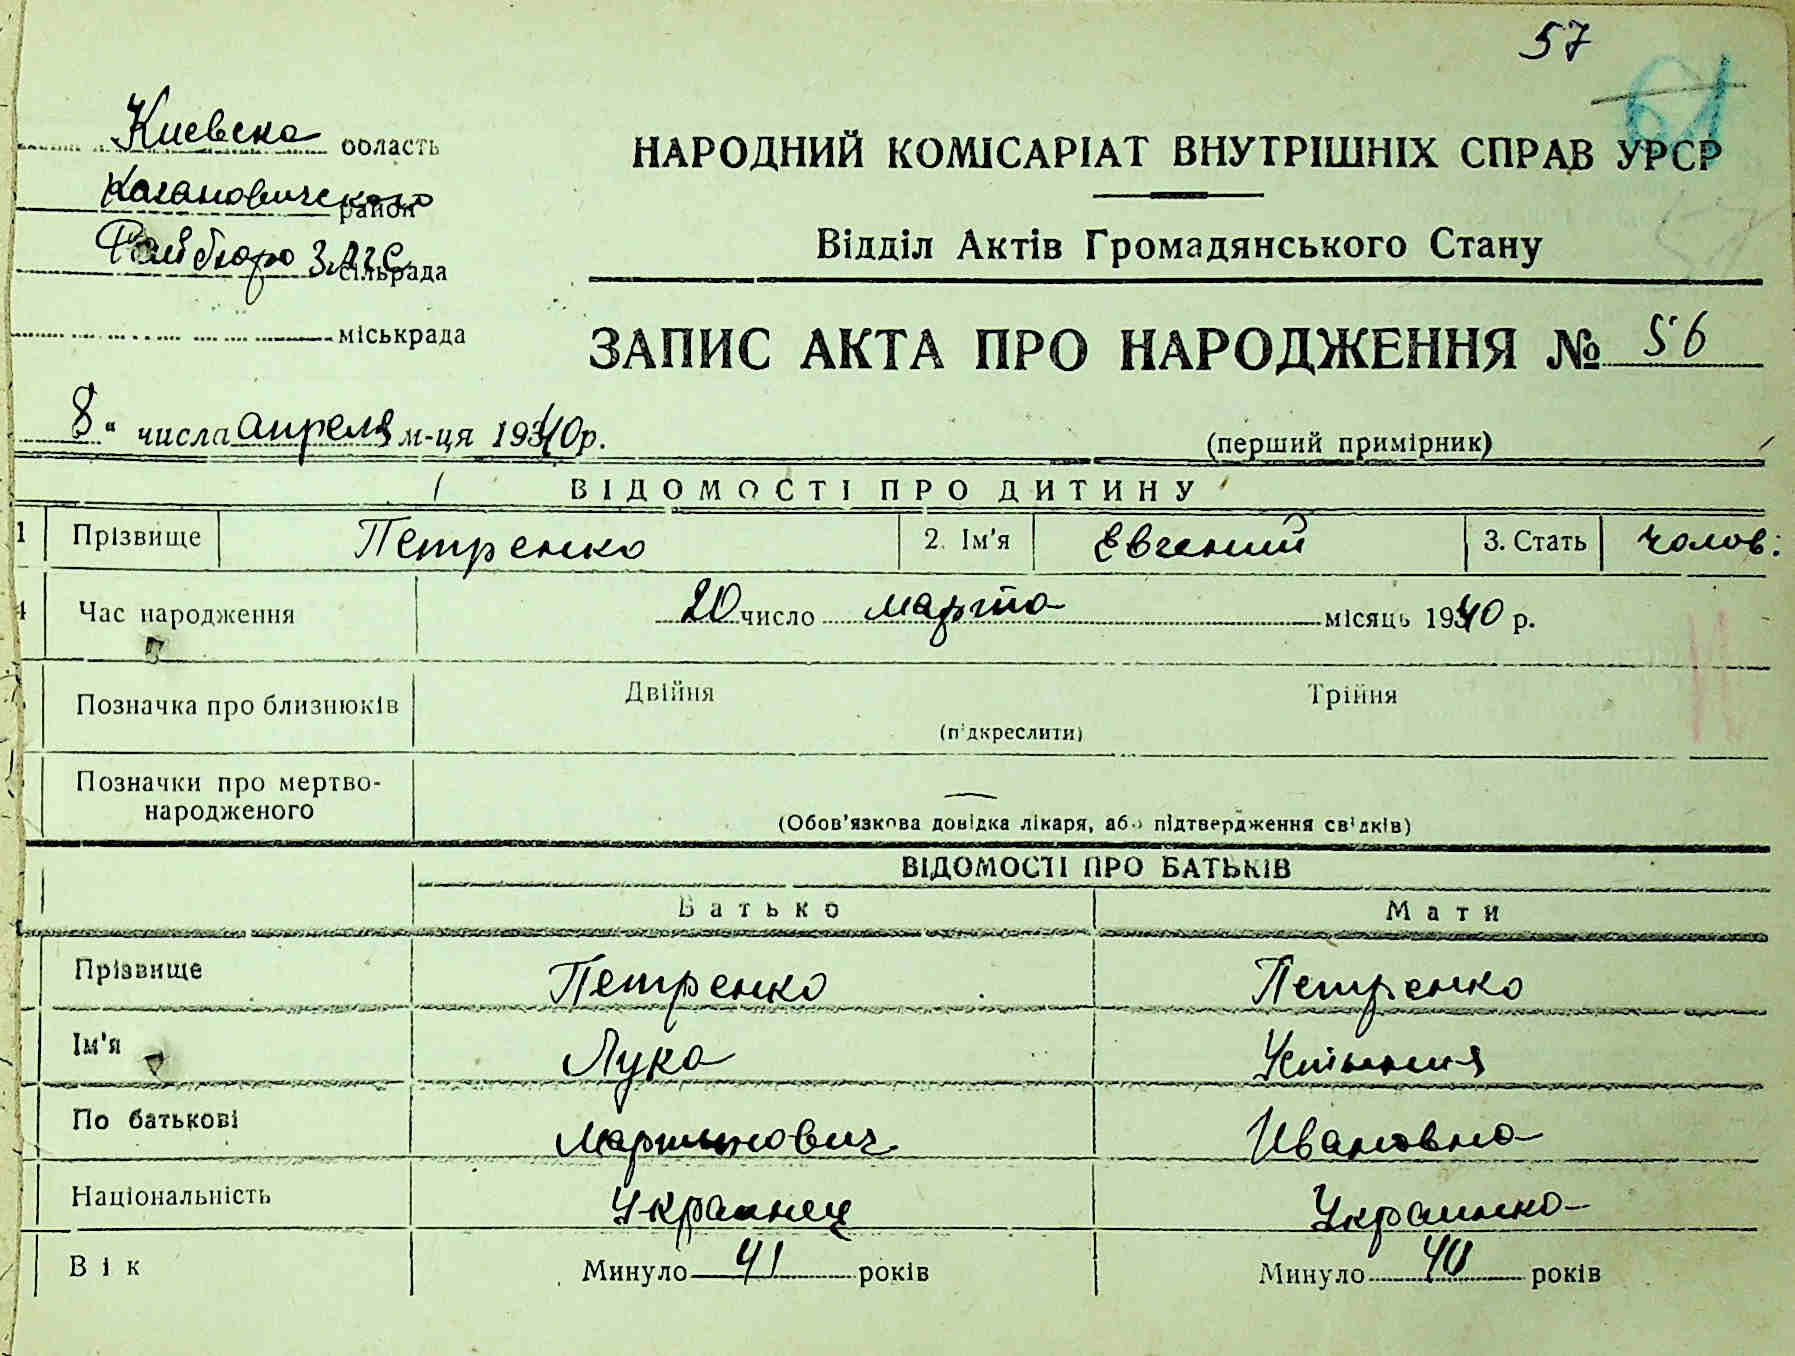 57
61
Киевска область
Кагановичского район
Райбюро ЗАГС сільрада
міськрада
НАРОДНИЙ КОМІСАРІАТ ВНУТРІШНІХ СПРАВ УРСР
Відділ Актів Громадянського Стану
ЗАПИС АКТА ПРО НАРОДЖЕННЯ № 56
8 " числа апреля м-ця 1940 р.
(перший примірник)
ВІДОМОСТІ ПРО ДИТИНУ
1 Прізвище Петренко 2. Ім'я Евгений 3. Стать чолов.
4 Час народження 20 число марта місяць 1940 р.
Позначка про близнюків Двійня Трійня
(підкреслити)
Позначки про мертво-
народженого
(Обов'язкова довідка лікаря, або підтвердження свідків)
ВІДОМОСТІ ПРО БАТЬКІВ
Батько Мати
Прізвище Петренко Петренко
Ім'я Лука Устиния
По батькові Мартинович Ивановна
Національність Украинец Украинка
Вік Минуло 41 років Минуло 40 років